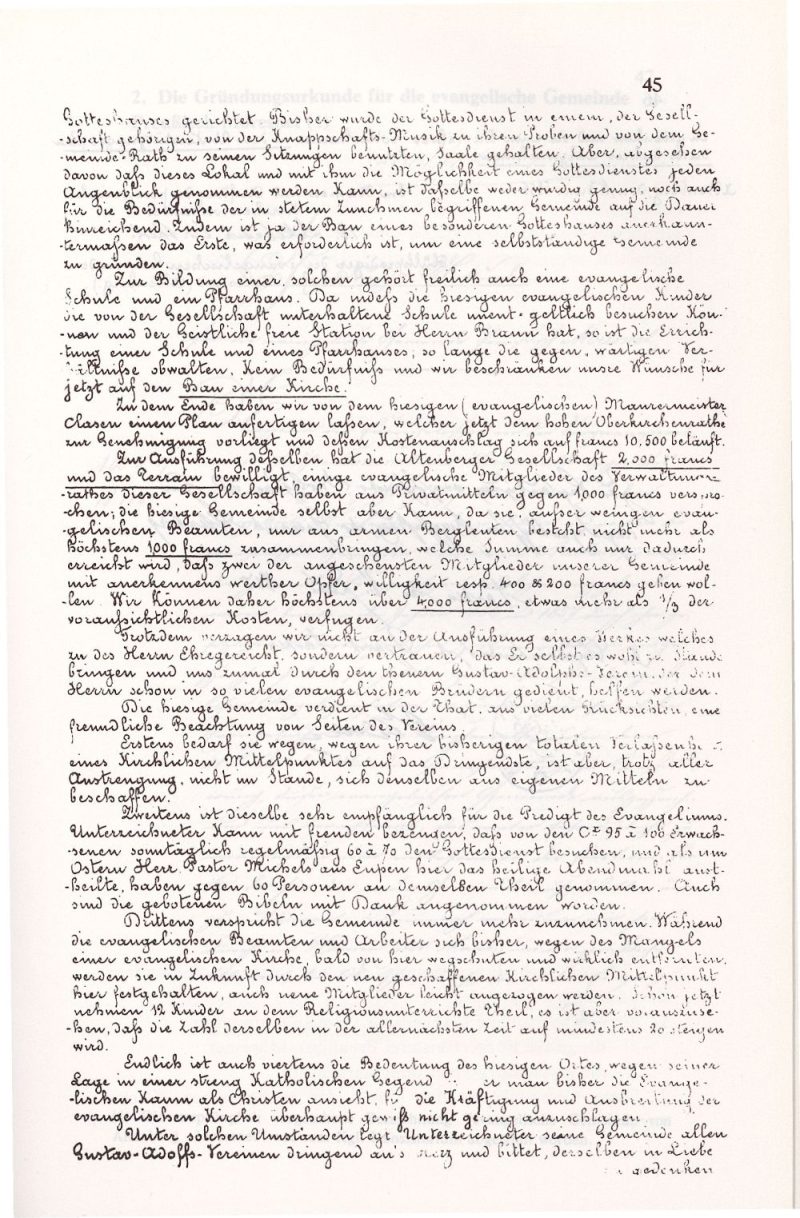 45
Gotteshauses gerichtet. Bisher wurde der Gottesdienst in einem, der Gesell-
-schaft gehörigen, von der Knappschafts-Musik zu ihren Proben und von dem Ge-
-meinde-Rath zu seinen Sitzungen benutzten, Saale gehalten. Aber, abgesehen
davon daß dieses Lokal und mit ihm die Möglichkeit eines Gottesdienstes jeden
Augenblick genommen werden kann, ist daßelbe weder würdig genug, noch auch
für die Bedürfniße der in stetem Zunehmen begriffenen Gemeinde auf die Dauer
hinreichend. Zudem ist ja der Bau eines besonderen Gotteshauses anerkann-
-termaßen das Erste, was erforderlich ist, um eine selbstständige Gemeinde
zu gründen.
Zur Bildung einer solchen gehört freilich auch eine evangelische
Schule und ein Pfarrhaus. Da indeß die hiesigen evangelischen Kinder
die von der Gesellschaft unterhaltene Schule unent-geltlich besuchen Kön-
-nen und der Geistliche freie Station bei Herrn Braun hat, so ist die Errich-
-tung einer Schule und eines Pfarrhauses, so lange die gegen, wärtigen Ver-
-hältniße obwalten, kein Bedürfniß und wir beschränken unsre Wünsche für
jetzt auf den Bau einer Kirche.
Zu dem Ende haben wir von dem hiesigen (evangelischen) Maurermeister
Clasen einen Plan anfertigen laßen, welcher jetzt dem hohen Oberkirchenrathe
zur Genehmigung vorliegt und deßen Kostenanschlag sich auf francs 10,500 beläuft.
Zur Ausführung deßelben hat die Altenberger Gesellschaft 2,000 francs
und das Terrain bewilligt, einige evangelische Mitglieder des Verwaltungs-
-rathes dieser Gesellschaft haben aus Privatmitteln gegen 1,000 francs verspro-
-chen; die hiesige Gemeinde selbst aber kann, da sie, außer weingen evan-
-gelischen Beamten, nur aus armen Bergleuten besteht, nicht mehr als
höchstens 1000 francs zusammenbringen, welche Summe auch nur dadurch
erreicht wird, daß zwei der angesehensten Mitglieder unserer Gemeinde
mit anerkennens werther Opfer, willigkeit resp. 400 & 200 francs geben wol-
-len. Wir können daher höchstens über 4,000 francs, etwas mehr als 1/3 der
voraussichtlichen Kosten, verfugen.
Trotzdem verzagen wir nicht an der Ausführung eines Werkes welches
zu des Herrn Ehre gereicht, sondern vertrauen, das Er selbst es wohl zu Stande
bringen und uns zumal durch den theuern Gustav-Adolphs-Verein, der dem
Herrn schon in so vielen evangelischen Brüdern gedient, helfen werden.
Die hiesige Gemeinde verdient in der That, aus vielen Rücksichten, eine
freundliche Beachtung von Seiten des Vereins.
Erstens bedarf sie wegen, wegen ihrer bisherigen totalen
eines Kirchlichen Mittelpunktes auf das Dringendste, ist aber, trotz aller
Anstrengung, nicht im Stande, sich denselben aus eigenen Mitteln zu
beschaffen.
Zweitens ist dieselbe sehr empfänglich für die Predigt des Evangeliums.
Unterzeichneter kann mit freuden bezeugen, daß von den Ca 95 à 100 Erwach-
-senen sonntäglich regelmäßig 60 à 70 den Gottesdienst besuchen, und als um
Ostern Herr Pastor Michels aus Eupen hier das heilige Abendmahl aust-
-heilte, haben gegen 60 Personen an demselben Theil genommen. Auch
sind die gebotenen Bibeln mit Dank angenommen worden.
Drittens verspricht die Gemeinde immer mehr zuzunehmen. Während
die evangelischen Beamten und Arbeiter sich bisher, wegen des Mangels
einer evangelischen Kirche, bald von hier wegsehnten und wirklich entfernten,
werden sie in Zukunft durch den neu geschaffenen Kirchlichen Mittelpunkt
hier festgehalten, auch neue Mitglieder leicht angezogen werden. Schon jetzt
nehmen 12 Kinder an dem Religionsunterrichte Theil, es ist aber vorauszuse-
-hen, daß die Zahl derselben in der allernächsten Zeit auf mindestens 20 steigen
wird.
Endlich ist auch viertens die Bedeutung des hiesigen Ortes, wegen seiner
Lage in einer streng Katholischen Gegend man bisher die Evange-
-lischen kaum als Christen ansieht, für die Kräftigung und Ausbreitung der
evangelischen Kirche überhaupt gewiß nicht gering anzuschlagen.
Unter solchen Umständen legt Unterzeichneter seine Gemeinde allen
Gustav-Adolfs-Vereinen dringend an's Herz und bittet, derselben in Liebe
gedenken